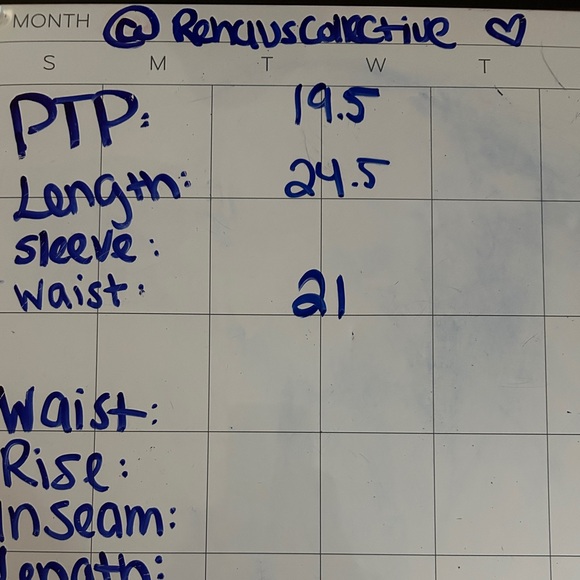 MONTH @RenausCollective ♡
S M T W T
PTP: 19.5
Length: 24.5
sleeve:
waist: 21
Waist:
Rise:
Inseam:
Length: